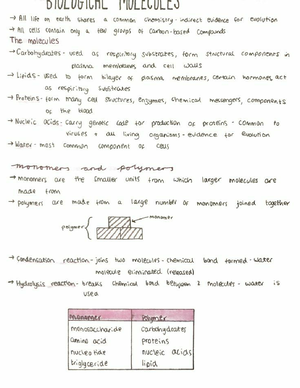 BIOLOGICAL MOLECULES
→ All life on earth shares a common chemistry - indirect evidence for evolution
→ All cells contain only a few groups of carbon-based compounds
The molecules
→ Carbohydrates - used as respiratory substrates, form structural components in
plasma membranes and cell walls
→ Lipids - used to form bilayer of plasma membranes, certain hormones, act
as respiratory substrates
→ Proteins - form many cell structures, enzymes, chemical messengers, components
of the blood
→ Nucleic acids - carry genetic code for production of proteins - common to
viruses + all living organisms - evidence for evolution
→ Water - most common component of cells
monomers and polymers
→ monomers are the smaller units from which larger molecules are
made from
→ polymers are made from a large number of monomers joined together
monomer
polymer
→ Condensation reaction - joins two molecules - chemical bond formed - water
molecule eliminated (released)
→ Hydrolysis reaction - breaks chemical bond between 2 molecules - water is
used
monomer polymer
monosaccharide carbohydrates
amino acid proteins
nucleotide nucleic acids
triglyceride lipid